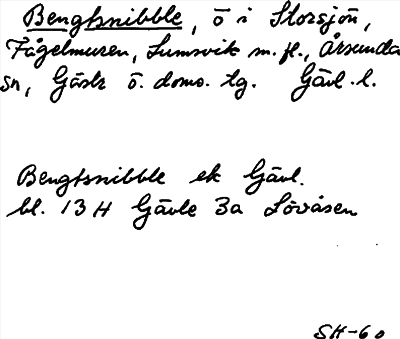 Bengtsnibble, ö i Storsjön,
Fågelmuren, Lumsvik m. fl., Årsunda
sn, Gästr ö. doms. tg. Gävl. l.
Bengtsnibble ek Gävl.
bl. 13 H Gävle 3a Lövåsen
SH-60